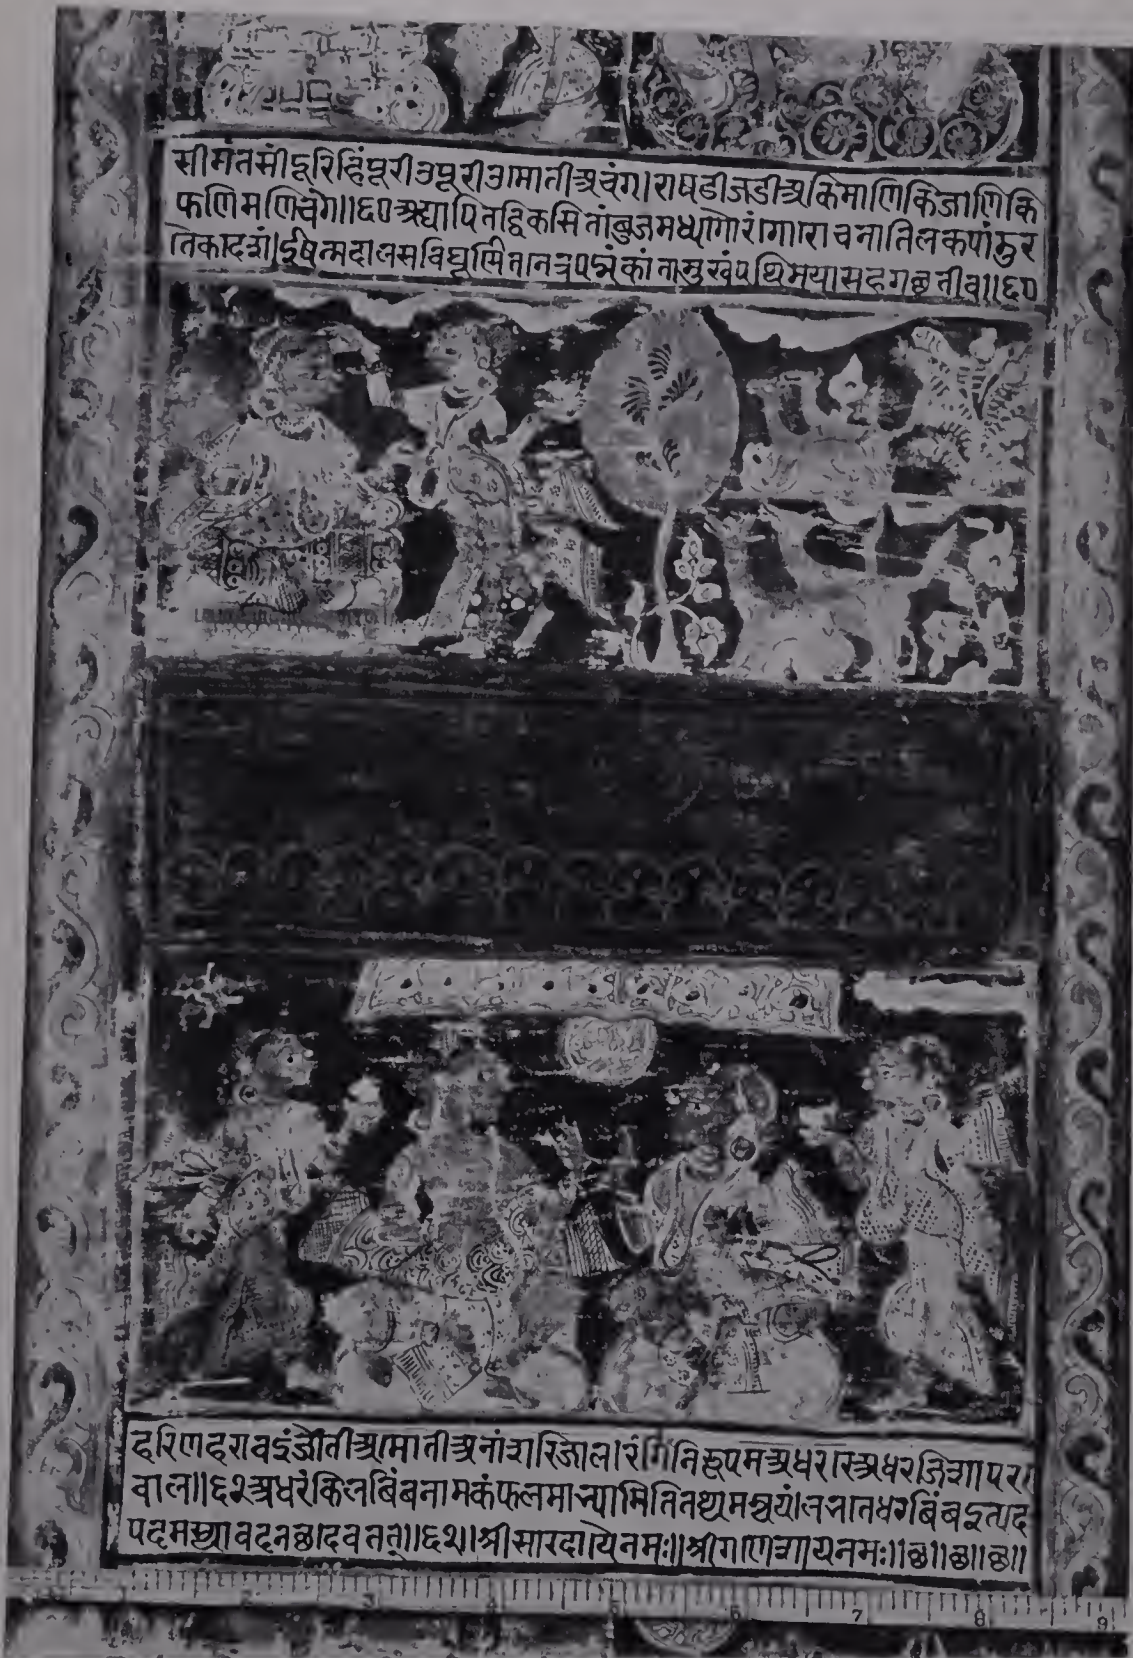 सीमंतसींदूरिहिंपूरीउपूरीआमातीअचंग।राषडीजडीअकिमाणिकिजाणिकि
फणिमणिचंग॥६०अद्यापितद्विकसितांबुजमध्यगोरंगा।राचनातिलकपांसुर
ईषन्मदालसविघूर्णितकांतासुखंपथिमयासहगछतीव॥६०
हरिणहरावइंजोतीअमोतीअनांशरिजाल।रंगिनिरूपमअधरास्अधरजिशापर
वाल॥६१अधरंकिलबिंबनामकंफलमान्यामितितथ्यमन्वयं।लभातधरबिंबइत्यद
पदमस्यावदनछादवतत्॥६१।श्रीसारदायेनमः॥श्रीगणिशायनमः॥छ॥छ॥छ॥
3 4 5 6 7 8 9